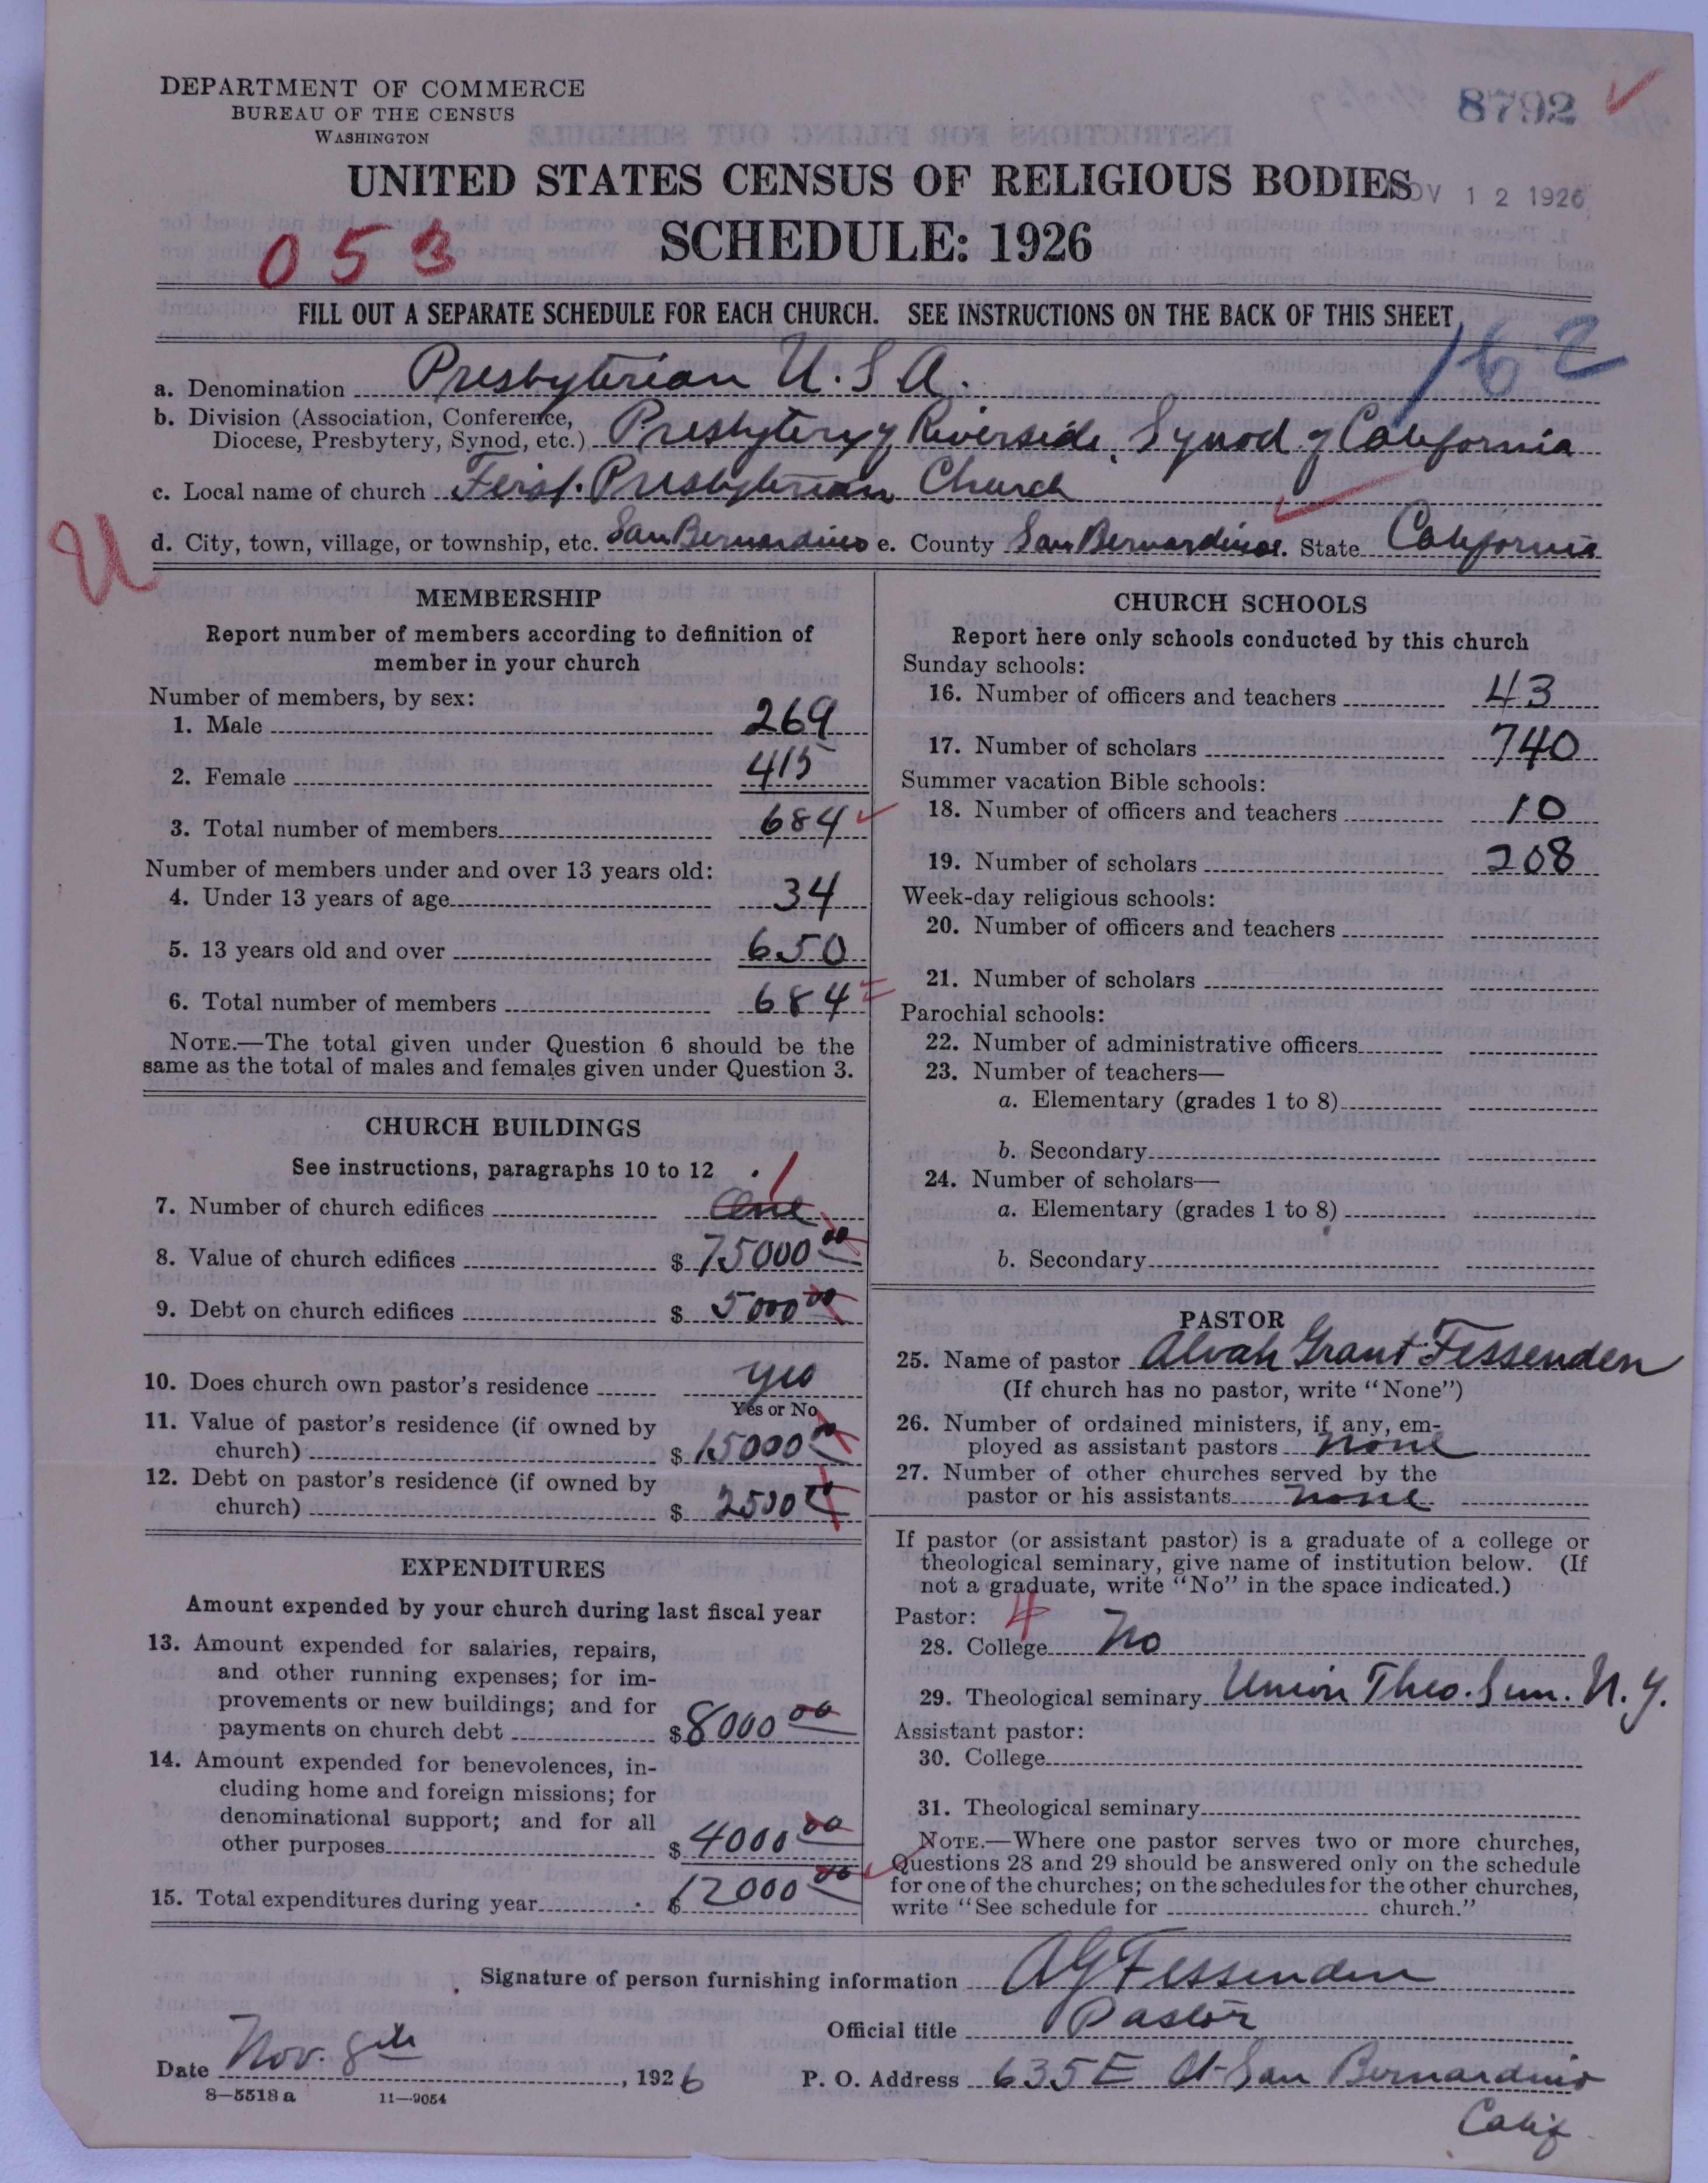 DEPARTMENT OF COMMERCE
BUREAU OF THE CENSUS
WASHINGTON
8792
UNITED STATES CENSUS OF RELIGIOUS BODIES
NOV 12 1926
SCHEDULE: 1926
053
FILL OUT A SEPARATE SCHEDULE FOR EACH CHURCH. SEE INSTRUCTIONS ON THE BACK OF THIS SHEET
162
a. Denomination Presbyterian U.S.A.
b. Division (Association, Conference,
Diocese, Presbytery, Synod, etc.) Presbytery of Riverside, Synod of California
c. Local name of church First Presbyterian Church
U
d. City, town, village, or township, etc. San Bernardino e. County San Bernardino f. State California
MEMBERSHIP
Report number of members according to definition of
member in your church
Number of members, by sex:
1. Male 269
2. Female 415
3. Total number of members 684
Number of members under and over 13 years old:
4. Under 13 years of age 34
5. 13 years old and over 650
6. Total number of members 684
NOTE.—The total given under Question 6 should be the
same as the total of males and females given under Question 3.
CHURCH BUILDINGS
See instructions, paragraphs 10 to 12
1
7. Number of church edifices One
8. Value of church edifices $ 75000 00
9. Debt on church edifices $ 5000 00
10. Does church own pastor's residence yes
Yes or No
11. Value of pastor's residence (if owned by
church) $ 15000 00
12. Debt on pastor's residence (if owned by
church) $ 2500 00
EXPENDITURES
Amount expended by your church during last fiscal year
13. Amount expended for salaries, repairs,
and other running expenses; for im-
provements or new buildings; and for
payments on church debt $ 8000 00
14. Amount expended for benevolences, in-
cluding home and foreign missions; for
denominational support; and for all
other purposes $ 4000 00
15. Total expenditures during year $ 12000 00
CHURCH SCHOOLS
Report here only schools conducted by this church
Sunday schools:
16. Number of officers and teachers 43
17. Number of scholars 740
Summer vacation Bible schools:
18. Number of officers and teachers 10
19. Number of scholars 208
Week-day religious schools:
20. Number of officers and teachers
21. Number of scholars
Parochial schools:
22. Number of administrative officers
23. Number of teachers—
a. Elementary (grades 1 to 8)
b. Secondary
24. Number of scholars—
a. Elementary (grades 1 to 8)
b. Secondary
PASTOR
25. Name of pastor Alvah Grant Fessenden
(If church has no pastor, write "None")
26. Number of ordained ministers, if any, em-
ployed as assistant pastors none
27. Number of other churches served by the
pastor or his assistants none
If pastor (or assistant pastor) is a graduate of a college or
theological seminary, give name of institution below. (If
not a graduate, write "No" in the space indicated.)
Pastor: 4
28. College No
29. Theological seminary Union Theo. Sem. N.Y.
Assistant pastor:
30. College
31. Theological seminary
NOTE.—Where one pastor serves two or more churches,
Questions 28 and 29 should be answered only on the schedule
for one of the churches; on the schedules for the other churches,
write "See schedule for church."
Signature of person furnishing information AG Fessenden
Official title Pastor
Date Nov. 8th, 1926
P. O. Address 635 E St San Bernardino
Calif
8—5518 a 11—9054